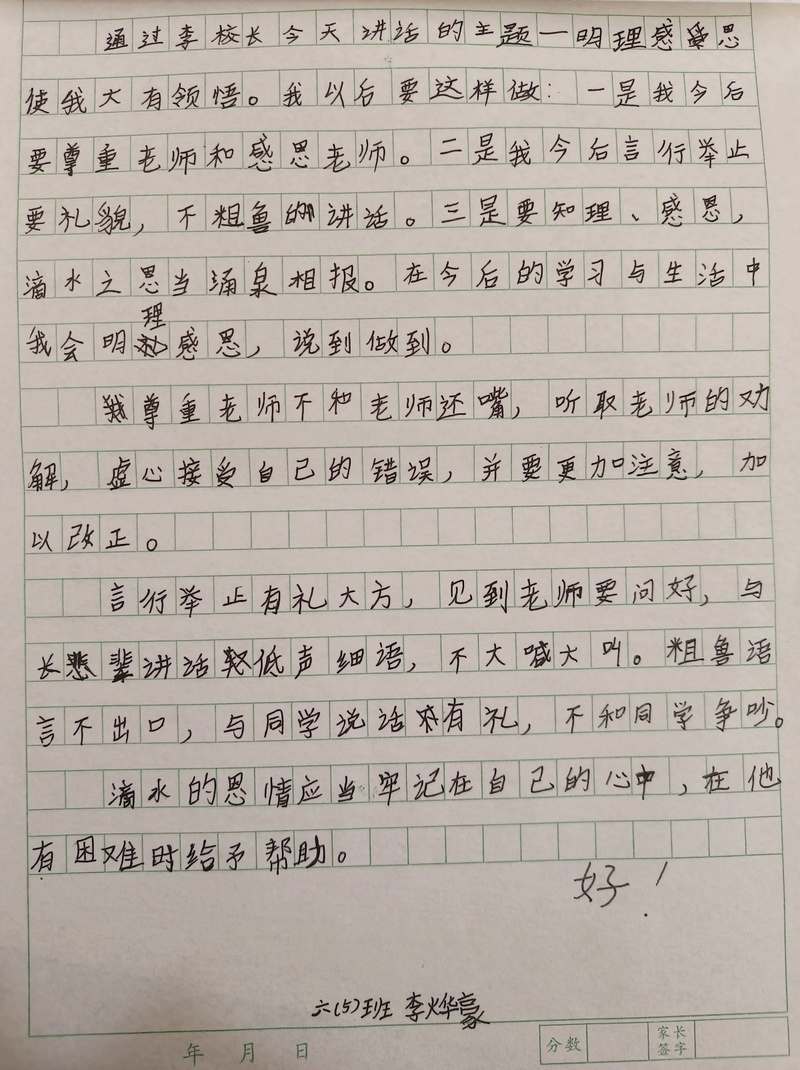 通过李校长今天讲话的主题一明理感恩
使我大有领悟。我以后要这样做：一是我今后
要尊重老师和感恩老师。二是我今后言行举止
要礼貌，不粗鲁的讲话。三是要知理、感恩，
滴水之恩当涌泉相报。在今后的学习与生活中
理
我会明感恩，说到做到。
我尊重老师不和老师还嘴，听取老师的劝
解，虚心接受自己的错误，并要更加注意，加
以改正。
言行举止有礼大方，见到老师要问好，与
长辈讲话轻低声细语，不大喊大叫。粗鲁语
言不出口，与同学说话有礼，不和同学争吵。
滴水的恩情应当牢记在自己的心中，在他
有困难时给予帮助。
好！
六(5)班 李烨豪
年 月 日
分数
家长
签字